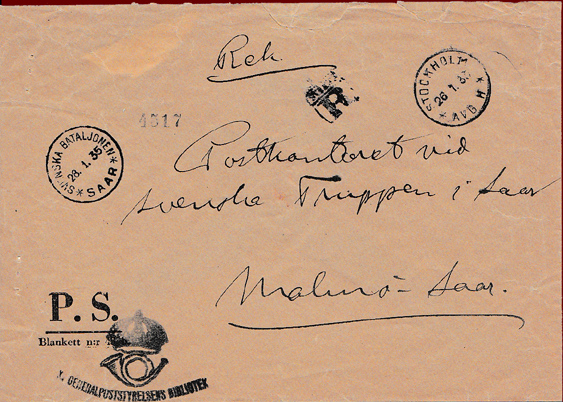 Rek.
R
STOCKHOLM
26.1.35
* AVG H *
4517
SVENSKA BATALJONEN
28.1.35
* SAAR *
Postkontoret vid
svenska Truppen i Saar
Malmö - Saar.
P. S.
Blankett n:r
K. GENERALPOSTSTYRELSENS BIBLIOTEK